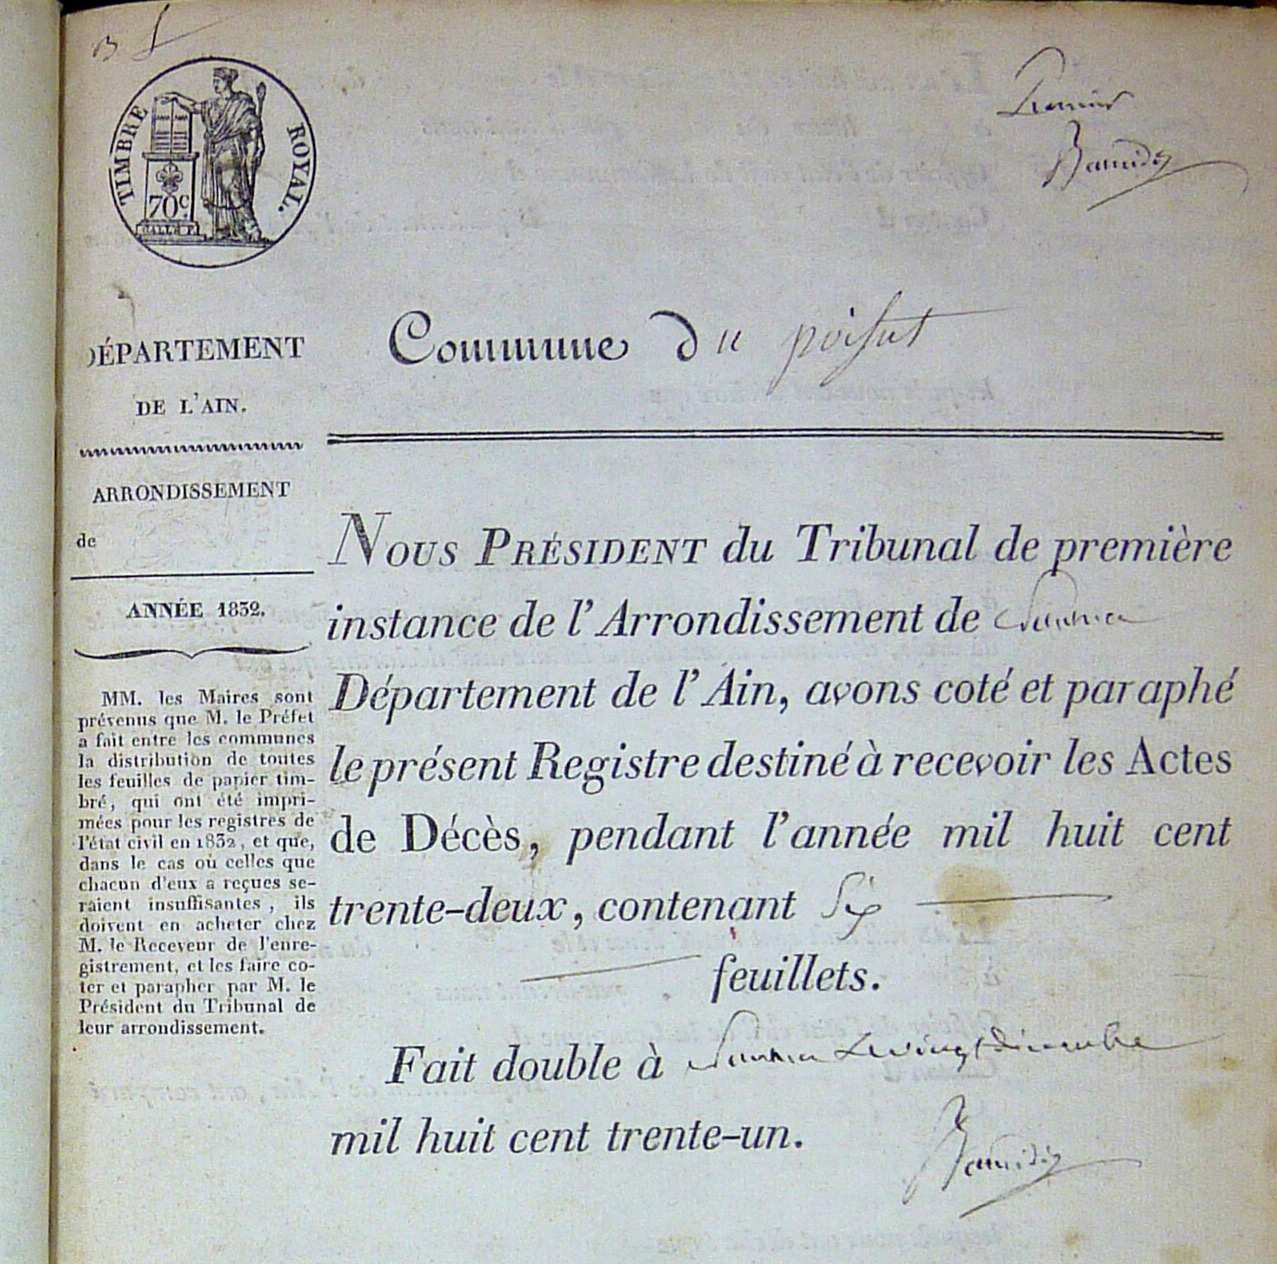 TIMBRE ROYAL.
70C
DÉPARTEMENT
DE L'AIN.
ARRONDISSEMENT
de
ANNÉE 1832.
MM. les Maires sont
prévenus que M. le Préfet
a fait entre les communes
la distribution de toutes
les feuilles de papier tim-
bré, qui ont été impri-
mées pour les registres de
l'état civil en 1832, et que,
dans le cas où celles que
chacun d'eux a reçues se-
raient insuffisantes, ils
doivent en acheter chez
M. le Receveur de l'enre-
gistrement, et les faire co-
ter et parapher par M. le
Président du Tribunal de
leur arrondissement.
Premier
Commune du poisat
NOUS PRÉSIDENT du Tribunal de première
instance de l'Arrondissement de Nantua
Département de l'Ain, avons coté et paraphé
le présent Registre destiné à recevoir les Actes
de Décès, pendant l'année mil huit cent
trente-deux, contenant Six
feuillets.
Fait double à Nantua Le vingt décembre
mil huit cent trente-un.